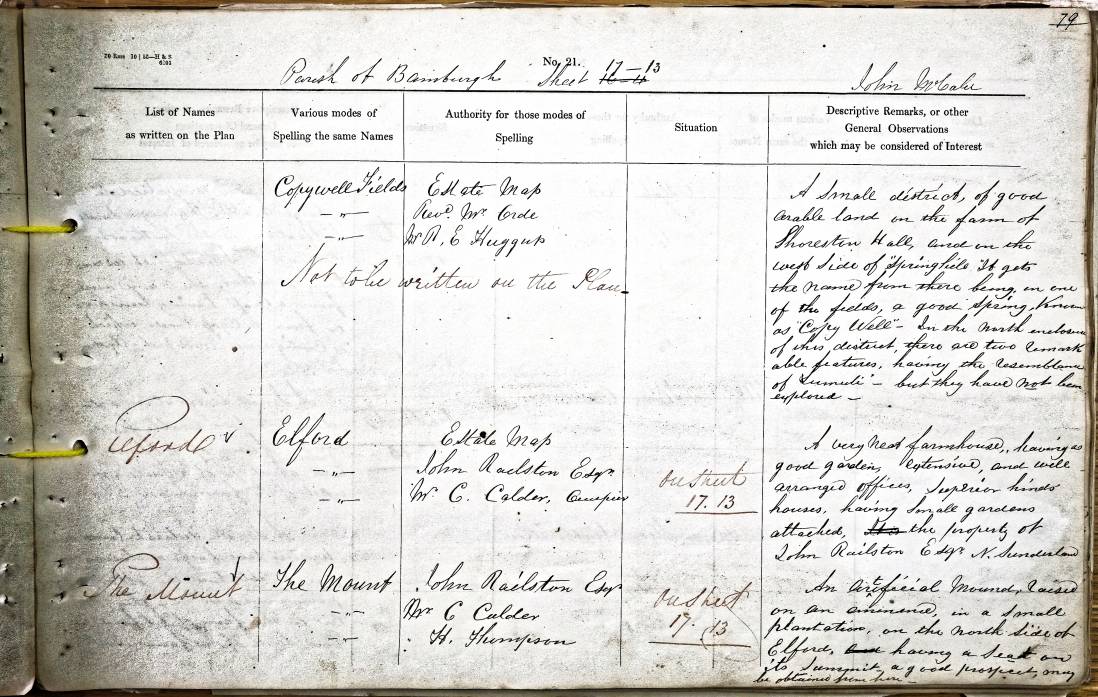 79
No. 21.
Parish of Bamburgh Sheet 17-13
List of Names
as written on the Plan
Various modes of
Spelling the same Names
Authority for those modes of
Spelling
Situation
Descriptive Remarks, or other
General Observations
which may be considered of Interest
Copywell Fields
Estate Map
Revd. Mr. Orde
Mr R. E Huggup
Not to be written on the Plan
A Small district, of good
arable land on the farm of
Shoreston Hall, and on the
west side of "Springfield" It gets
the name from there being, in one
of the fields, a good Spring, Known
as "Copy Well" - In the North enclosure
of this district, there are two remark
able features, having the resemblance
of "tumuli" - but they have not been
explored -
Elford
Elford
Estate Map
John Railston Esqr.
Mr. C. Calder, Occupier
On Sheet
17.13
A very neat farmhouse, having a
good garden, extensive, and well-
arranged offices, Superior hinds'
houses, having Small gardens
attached, the property of
John Railston Esqr. N. Sunderland
The Mount
The Mount
John Railston Esqr
Mr C Calder
H. Thompson
On Sheet
17.13
An artificial Mound, raised
on an eminence, in a Small
plantation, on the North Side of
Elford, having a Seat on
its Summit, a good prospect, may
be obtained from here -